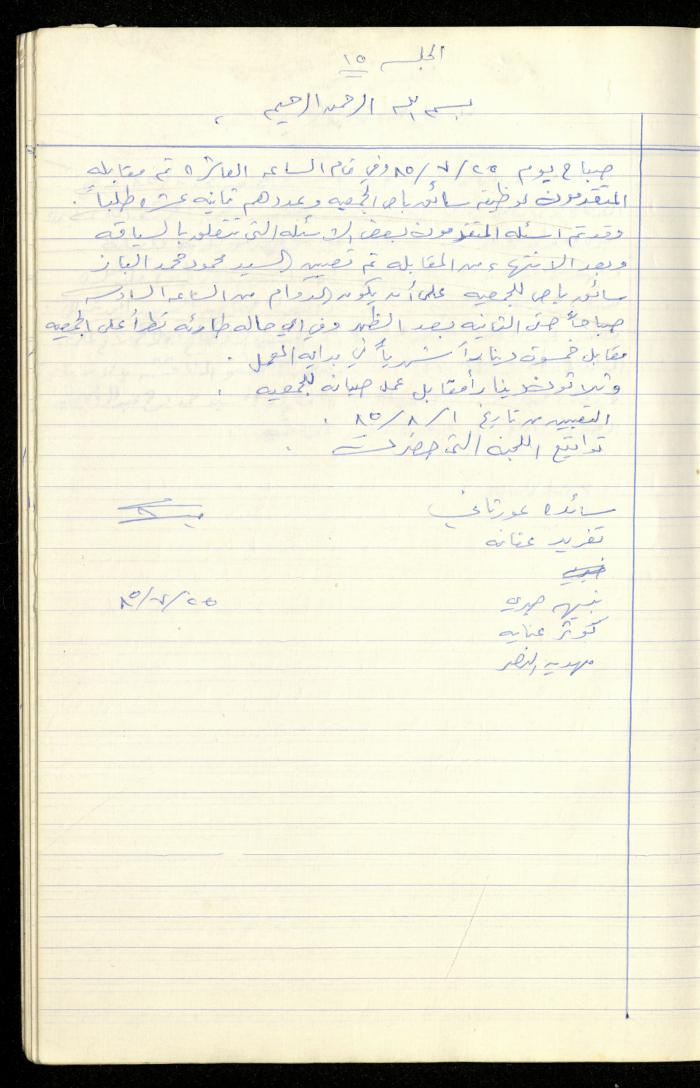 الجلسه ١٥
بسم الله الرحمن الرحيم ،
صباح يوم ٢٥/٧/٨٥ وفي تمام الساعه العاشره تم مقابله
المتقدمون لوظيفه سائق باص الجمعيه وعددهم ثمانيه عشره طلباً .
وقد تم اسئله المتقدمون بعض الاسئله التي تتعلق بالسياقه
وبعد الانتهاء من المقابله تم تعيين السيد محمود محمد الباز
سائق باص للجمعيه على أن يكون الدوام من الساعه السادسه
صباحاً حتى الثانيه بعد الظهر وفي اي حاله طارئه تطرأ على الجمعيه
مقابل خمسون ديناراً شهرياً في بدايه العمل .
وثلاثون ديناراً مقابل عمل صيانه للجمعيه .
التعيين من تاريخ ١/٨/٨٥ .
تواقيع اللجنه التي حضرت .
سائده عورتاني
تغريد عنايه
نبيهه
كوثر عنايه
مهديه النصر
٢٥/٧/٨٥